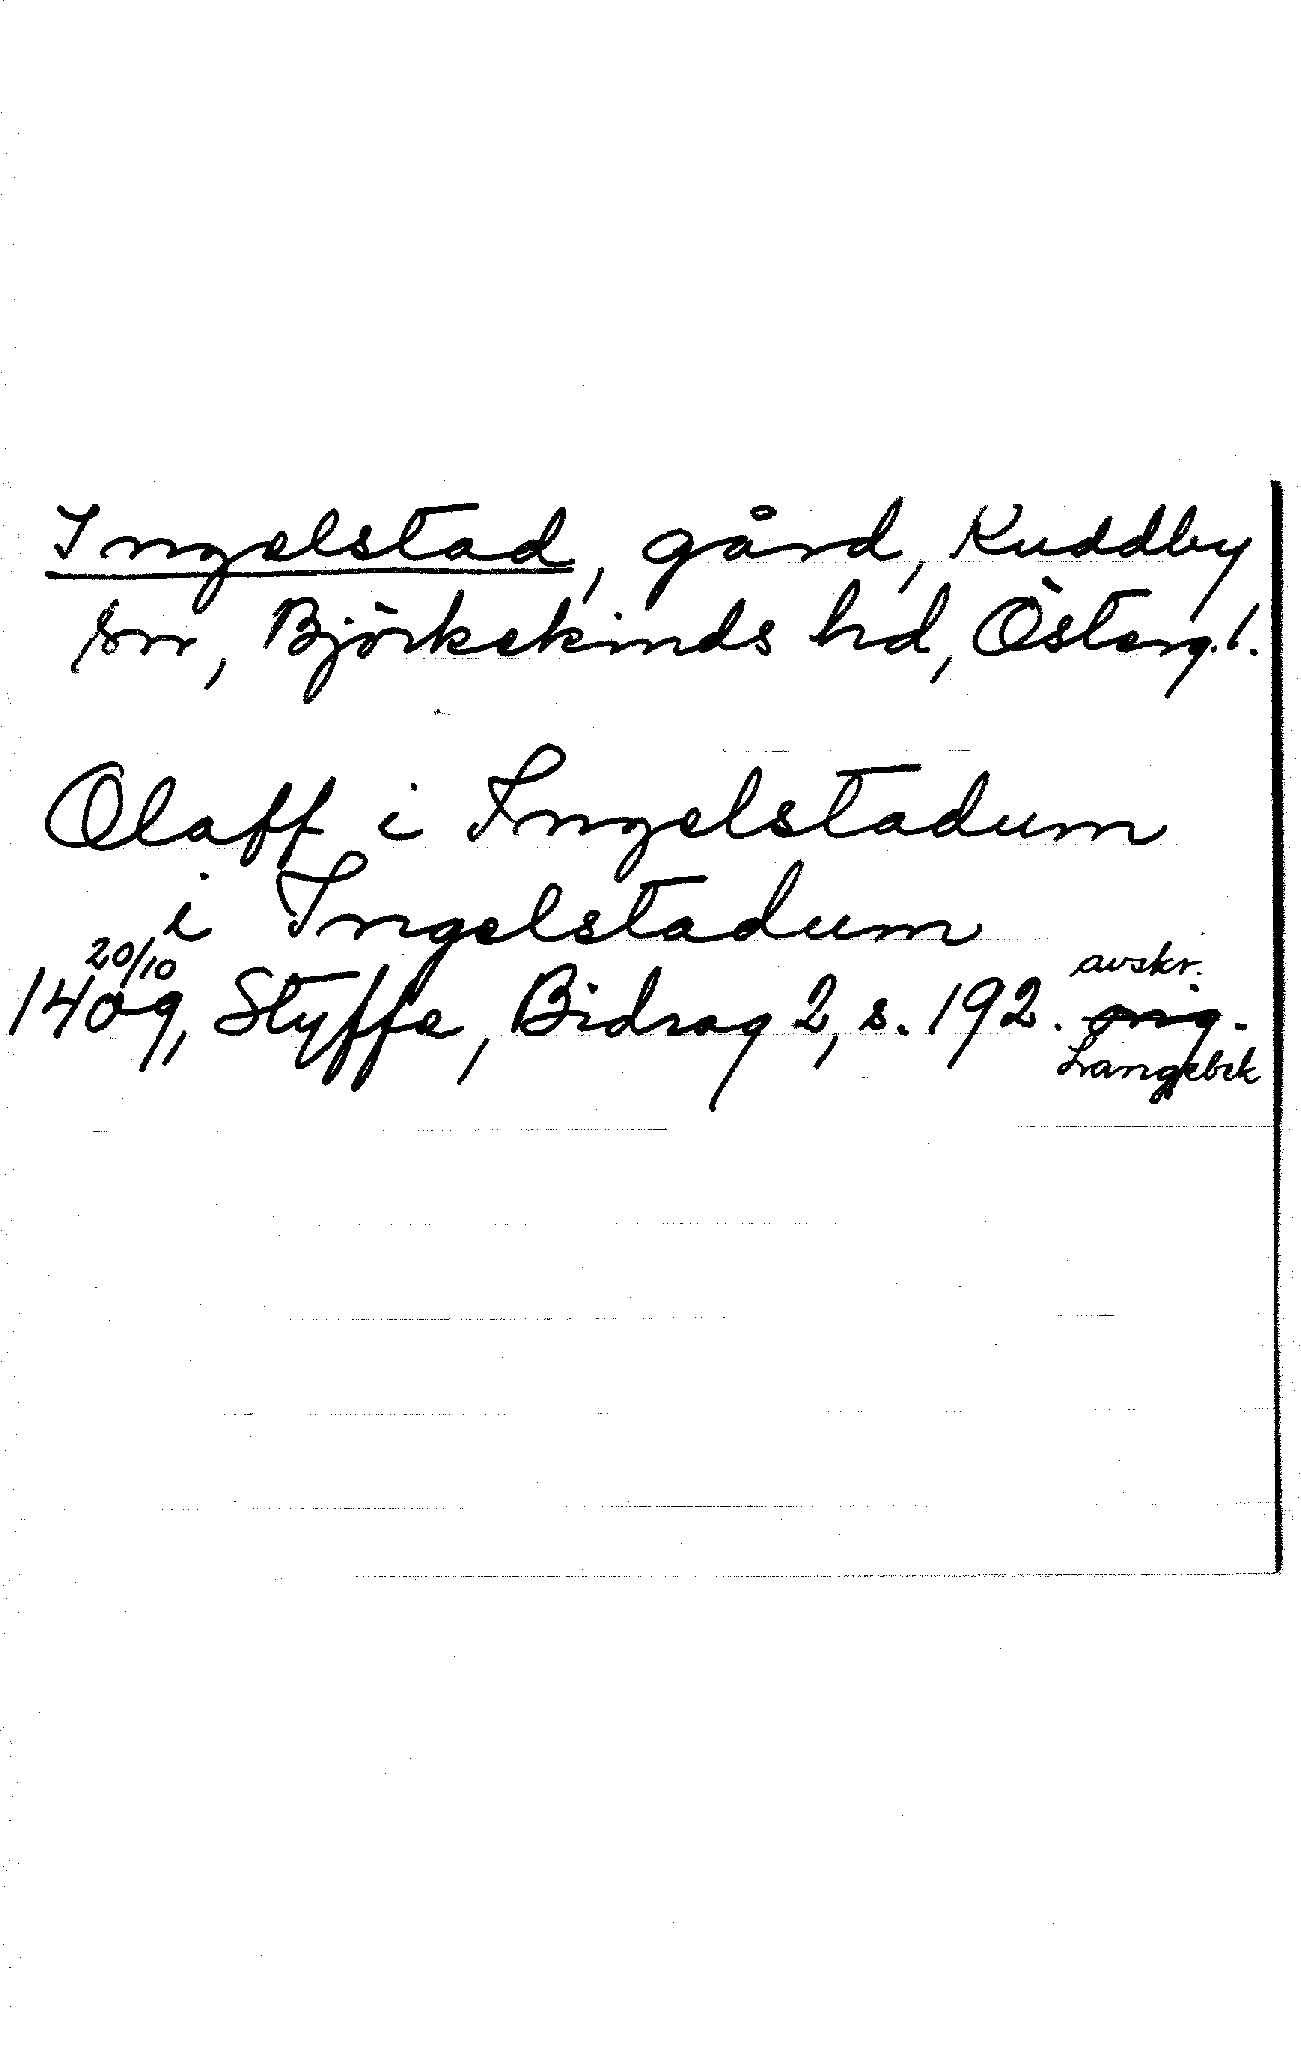 Ingelstad, gård, Kuddby
sn, Björkekinds hd, Östergl.
Olaff i Ingelstadum
i Ingelstadum
1409 20/10, Styffe, Bidrag 2, s. 192. orig.
avskr.
Langebek